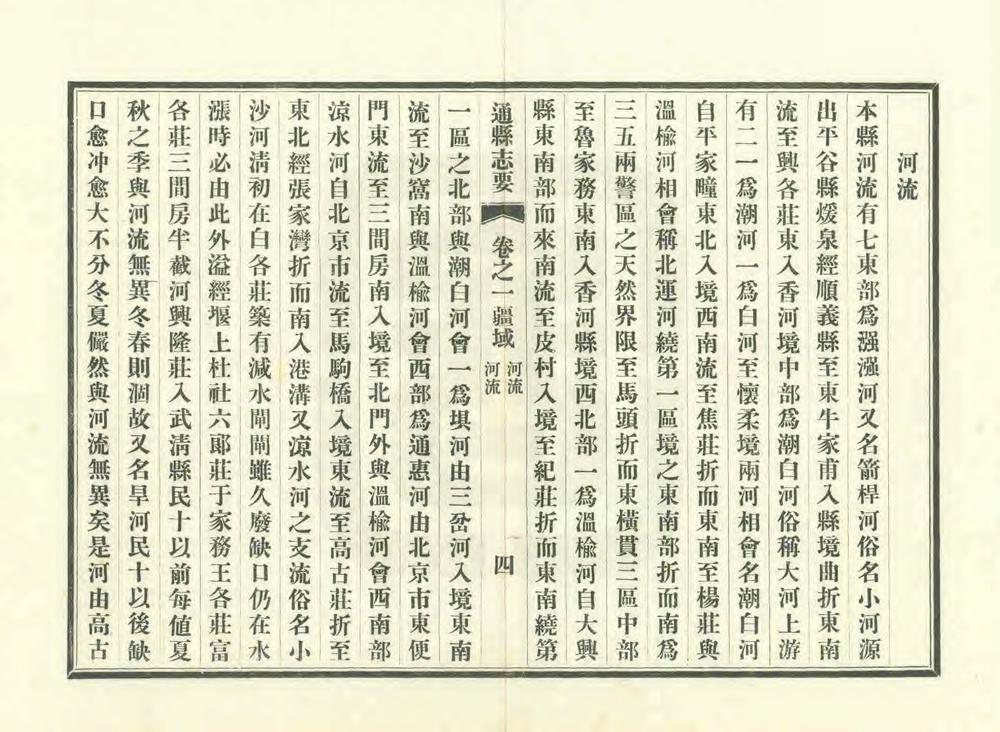 河流
本縣河流有七東部爲𣽂𣽂河又名箭桿河俗名小河源
出平谷縣煖泉經順義縣至東牛家甫入縣境曲折東南
流至興各莊東入香河境中部爲潮白河俗稱大河上游
有二一爲潮河一爲白河至懷柔境兩河相會名潮白河
自平家疃東北入境西南流至焦莊折而東南至楊莊與
溫楡河相會稱北運河繞第一區境之東南部折而南爲
三五兩警區之天然界限至馬頭折而東橫貫三區中部
至魯家務東南入香河縣境西北部一爲溫楡河自大興
縣東南部而來南流至皮村入境至紀莊折而東南繞第
通縣志要 卷之一 疆域 河流 河流 四
一區之北部與潮白河會一爲垻河由三岔河入境東南
流至沙窩南與溫楡河會西部爲通惠河由北京市東便
門東流至三間房南入境至北門外與溫楡河會西南部
涼水河自北京市流至馬駒橋入境東流至高古莊折至
東北經張家灣折而南入港溝又涼水河之支流俗名小
沙河淸初在白各莊築有減水閘閘雖久廢缺口仍在水
漲時必由此外溢經堰上杜社六郞莊于家務王各莊富
各莊三間房半截河興隆莊入武淸縣民十以前每値夏
秋之季與河流無異冬春則涸故又名旱河民十以後缺
口愈冲愈大不分冬夏儼然與河流無異矣是河由高古